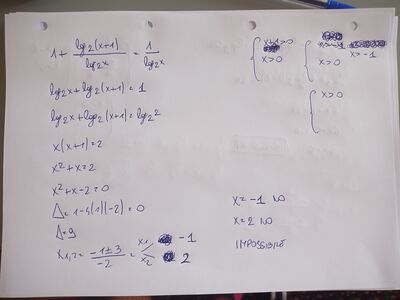 1 + log₂(x+1)/log₂x = 1/log₂x
log₂x + log₂(x+1) = 1
log₂x + log₂(x+1) = log₂2
x(x+1) = 2
x² + x = 2
x² + x - 2 = 0
Δ = 1 - 4(1)(-2) = 0
Δ = 9
x1,2 = (-1 ± 3)/-2 = x1 -1
x2 2
{ x+1>0
x>0
{ x>-1
x>0
{ x>0
x = -1 NO
x = 2 NO
IMPOSSIBILE